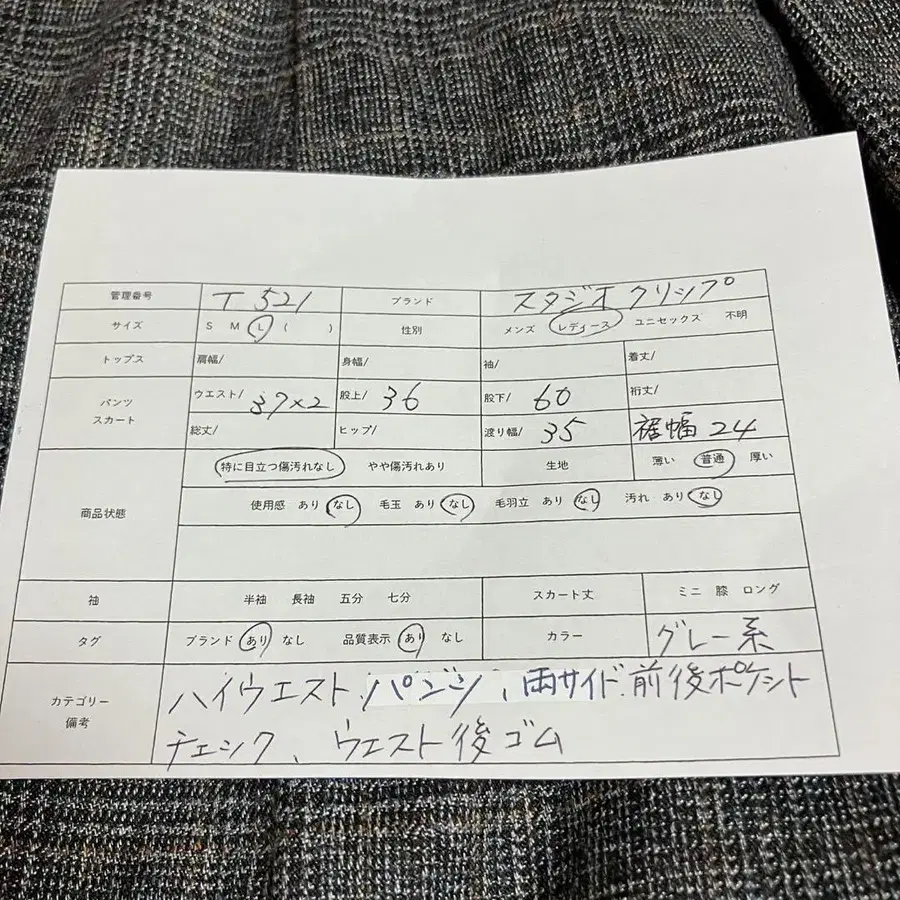 管理番号 T 521 ブランド スタジオクリップ
サイズ S M L ( ) 性別 メンズ レディース ユニセックス 不明
トップス 肩幅/ 身幅/ 袖/ 着丈/
パンツ スカート ウエスト/ 37×2 股上/ 36 股下/ 60 裄丈/
総丈/ ヒップ/ 渡り幅/ 35 裾幅 24
特に目立つ傷汚れなし やや傷汚れあり 生地 薄い 普通 厚い
商品状態 使用感 あり なし 毛玉 あり なし 毛羽立 あり なし 汚れ あり なし
袖 半袖 長袖 五分 七分 スカート丈 ミニ 膝 ロング
タグ ブランド あり なし 品質表示 あり なし カラー グレー系
カテゴリー 備考 ハイウエスト、パンツ、両サイド、前後ポケット
チェック、ウエスト後ゴム